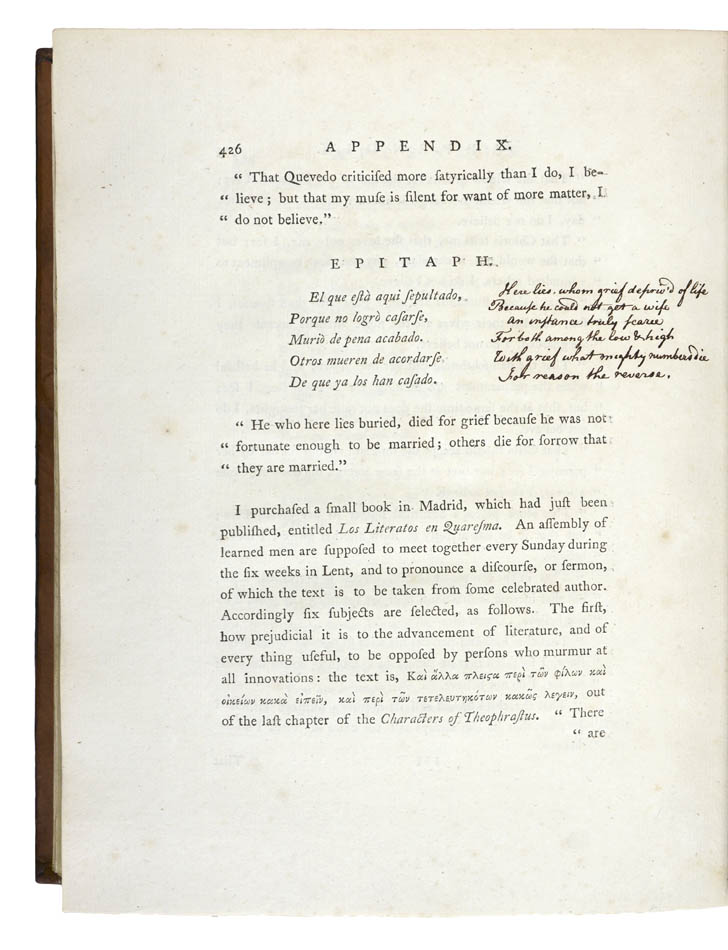 426 APPENDIX.
“ That Quevedo criticiſed more ſatyrically than I do, I be-
“ lieve ; but that my muſe is ſilent for want of more matter, I
“ do not believe.”
EPITAPH.
El que eſtà aqui ſepultado,
Porque no logrò caſarſe,
Muriò de pena acabado.
Otros mueren de acordarſe
De que ya los han caſado.
Here lies, whom grief depriv'd of life
Because he could not get a wife
an inſtance truly ſcarce
For both among the low & high
With grief what mighty numbers die
For reason the reverse.
“ He who here lies buried, died for grief becauſe he was not
“ fortunate enough to be married ; others die for ſorrow that
“ they are married.”
I purchaſed a ſmall book in Madrid, which had juſt been
publiſhed, entitled Los Literatos en Quareſma. An aſſembly of
learned men are ſuppoſed to meet together every Sunday during
the ſix weeks in Lent, and to pronounce a diſcourſe, or ſermon,
of which the text is to be taken from ſome celebrated author.
Accordingly ſix ſubjects are ſelected, as follows. The firſt,
how prejudicial it is to the advancement of literature, and of
every thing uſeful, to be oppoſed by perſons who murmur at
all innovations : the text is, Καὶ ἄλλα πλειϛα περὶ τῶν φίλων καὶ
οἰκείων κακὰ εἰπεῖν, καὶ περὶ τῶν τετελευτηκότων κακῶς λεγειν, out
of the laſt chapter of the Characters of Theophraſtus. “ There
“ are